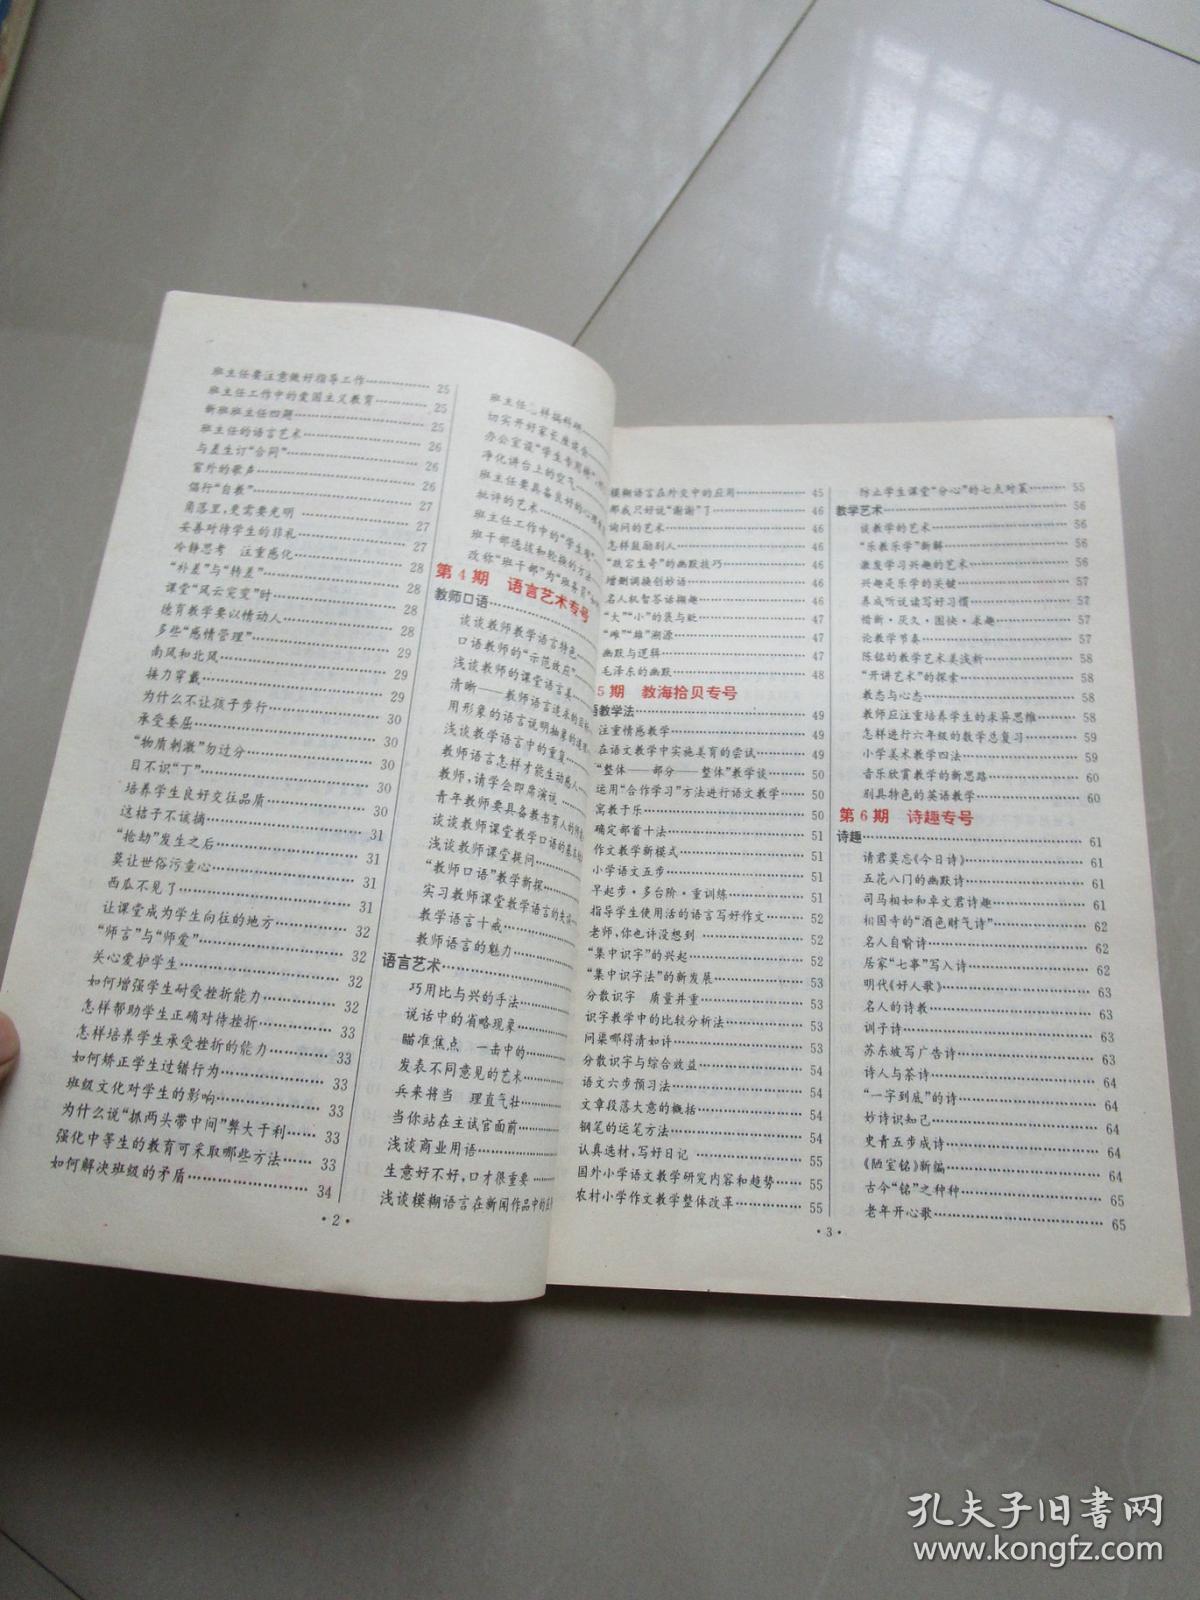 班主任要注意做好指导工作…………25
班主任工作中的爱国主义教育………25
新班班主任四题……………………25
班主任的语言艺术…………………26
与差生订“合同”……………………26
窗外的歌声…………………………26
倡行“自教”…………………………27
角落里,更需要光明………………27
妥善对待学生的非礼………………27
冷静思考 注重感化………………28
“朴差”与“转差”……………………28
课堂“风云突变”时…………………28
德育教学要以情动人………………28
多些“感情管理”……………………29
南风和北风…………………………29
接力穿戴……………………………29
为什么不让孩子步行………………30
承受委屈……………………………30
“物质刺激”勿过分…………………30
目不识“丁”…………………………30
培养学生良好交往品质……………30
这桔子不该摘………………………31
“抢劫”发生之后……………………31
莫让世俗污童心……………………31
西瓜不见了…………………………31
让课堂成为学生向往的地方………32
“师言”与“师爱”……………………32
关心爱护学生………………………32
如何增强学生耐受挫折能力………32
怎样帮助学生正确对待挫折………33
怎样培养学生承受挫折的能力……33
如何矫正学生过错行为……………33
班级文化对学生的影响……………33
为什么说“抓两头带中间”弊大于利……33
强化中等生的教育可采取哪些方法……33
如何解决班级的矛盾………………34
·2·
切实开好家长座谈会
办公室设“学生专用椅”
净化讲台上的空气
班主任要具备良好的心理
批评的艺术
班主任工作中的“学生观”
班干部选拔和轮换的方法
改称“班干部”为“班务员”
第4期 语言艺术专号
教师口语
谈谈教师教学语言特色
口语教师的“示范效应”
浅谈教师的课堂语言美
清晰——教师语言追求的目标
用形象的语言说明抽象的道理
浅谈教学语言中的重复
教师语言怎样才能生动感人
教师,请学会即席演说
青年教师要具备教书育人的
谈谈教师课堂教学口语的基本
浅谈教师课堂提问
“教师口语”教学新探
实习教师课堂教学语言的失误
教学语言十戒
教师语言的魅力
语言艺术
巧用比与兴的手法
说话中的省略现象
瞄准焦点 一击中的
发表不同意见的艺术
兵来将当 理直气壮
当你站在主试官面前
浅谈商业用语
生意好不好,口才很重要
浅谈模糊语言在新闻作品中的
模糊语言在外交中的应用……………45
那我只好说“谢谢”了………………46
询问的艺术…………………………46
怎样鼓励别人………………………46
“跌宕生奇”的幽默技巧……………46
增删调换创妙语……………………46
名人机智答话撷趣…………………46
“大”“小”的褒与贬…………………47
“雌”“雄”溯源………………………47
幽默与逻辑…………………………47
毛泽东的幽默………………………48
5期 教海拾贝专号
语教学法……………………………49
注重情感教学………………………49
在语文教学中实施美育的尝试……49
“整体——部分——整体”教学谈……50
运用“合作学习”方法进行语文教学……50
寓教于乐……………………………50
确定部首十法………………………51
作文教学新模式……………………51
小学语文五步………………………51
早起步·多台阶·重训练……………51
指导学生使用活的语言写好作文……52
老师,你也许没想到…………………52
“集中识字”的兴起…………………52
“集中识字法”的新发展……………53
分散识字 质量并重………………53
识字教学中的比较分析法…………53
问渠哪得清如许……………………53
分散识字与综合效益………………54
语文六步预习法……………………54
文章段落大意的概括………………54
钢笔的运笔方法……………………54
认真选材,写好日记…………………55
国外小学语文教学研究内容和趋势……55
农村小学作文教学整体改革………55
·3·
防止学生课堂“分心”的七点对策……55
教学艺术……………………………56
谈教学的艺术………………………56
“乐教乐学”新解……………………56
激发学习兴趣的艺术………………56
兴趣是乐学的关键…………………57
养成听说读写好习惯………………57
惜新·厌久·图快·求趣……………57
论教学节奏…………………………57
陈铭的教学艺术美浅析……………58
“开讲艺术”的探索…………………58
教态与心态…………………………58
教师应注重培养学生的求异思维……58
怎样进行六年级的数学总复习……59
小学美术教学四法…………………59
音乐欣赏教学的新思路……………60
别具特色的英语教学………………60
第6期 诗趣专号
诗趣…………………………………61
请君莫忘《今日诗》…………………61
五花八门的幽默诗…………………61
司马相如和卓文君诗趣……………61
相国寺的“酒色财气诗”……………62
名人自喻诗…………………………62
居家“七事”写入诗…………………62
明代《好人歌》………………………63
名人的诗教…………………………63
训子诗………………………………63
苏东坡写广告诗……………………63
诗人与茶诗…………………………64
“一字到底”的诗……………………64
妙诗识知己…………………………64
史青五步成诗………………………64
《陋室铭》新编………………………64
古今“铭”之种种……………………65
老年开心歌…………………………65
孔夫子旧书网
www.kongfz.com